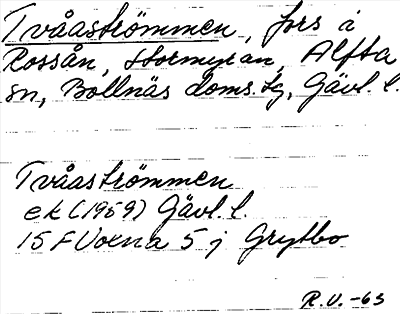 Tvåaströmmen, fors i
Rossån, Stormyran, Alfta
sn, Bollnäs doms.tg, Gävl. l.
Tvåaströmmen
ek (1959) Gävl. l.
15 F Voxna 5 j Grytbo
R.V.-63